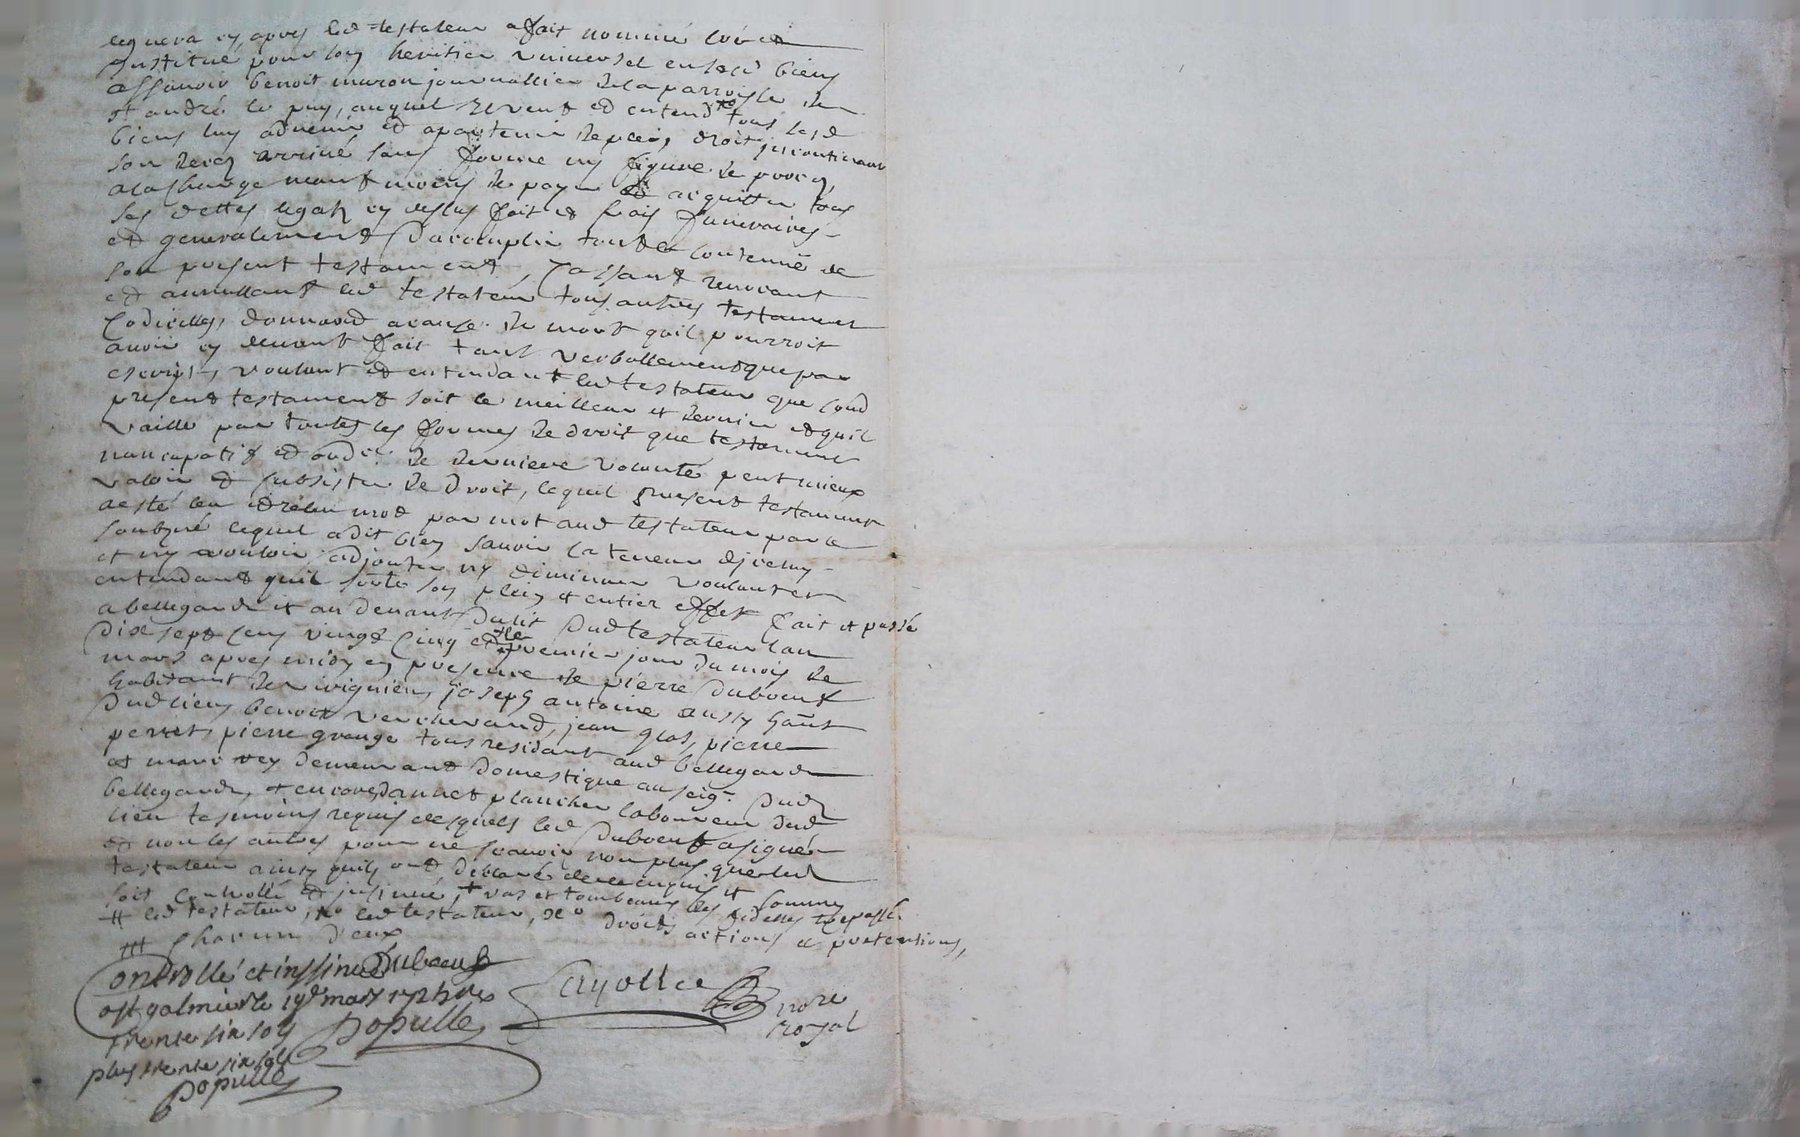 cy apres led testateur a fait nommé créé et
institué pour son heritier universel en sesd biens
assavoir benoit muron journallier de la parroisse de
st andré le puy, auquel il veut et entend tous sesd
biens luy advenir et apartenir de plein droit incontinant
son deces arrivé sans forme ny figure de proces,
a la charge neantmoins de payer et acquitter tous
ses dettes legatz cy dessus fait et frais funeraires
et generalement d'acomplir tout le contenue de
son present testament, Cassant revocant
et annullant led testateur tous autres testament
Codicilles, donnaond a cause de mort quil pourroit
avoir cy devant fait tant verballement que par
escript, voulant et entendant led testateur que sond
present testament soit le meilleur et dernier et quil
vaille par toutes les formes de droit que testament
nuncupatif et de derniere volonté peut mieux
valoir et subsister de droit, lequel present testament
a esté leu et releu mot par mot aud testateur par le
soubzné lequel a dit bien savoir la teneur d'jceluy
et ny vouloir adjouter ny diminuer voulant et
entendant quil sorte son plein et entier effet fait et passé
a bellegarde et au devant du lit dud testateur l'an
dix sept cens vingt cinq et le premier jour du mois de
mars apres midy en presence de pierre duboeuf
habitant de rivignieu, joseph antoine aussy hant
dud lieu, benoit vercherand, jean gras, pierre
perret, pierre grange tous residant aud bellegarde
et marc rey demeurant domestique au seigr dud
bellegarde, et encores annet plancher laboureur dud
lieu tesmoins requis desquels led duboeuf a signé
et non les autres pour ne scavoir non plus que led
testateur ainsy quils ont declaré de ce enquis et sommes
soit controllé et jnsinué, + vas et tombeaux des fidelles trepassé.
# led testateur, led testateur, droits actions et pretentions,
chacun d'eux
Controllé et inssinué Duboeuf
a st galmier le 19e mars 1725 reçu
trente six sols Populle
Cayolle
nore
royal
plus trente six sols
Populle